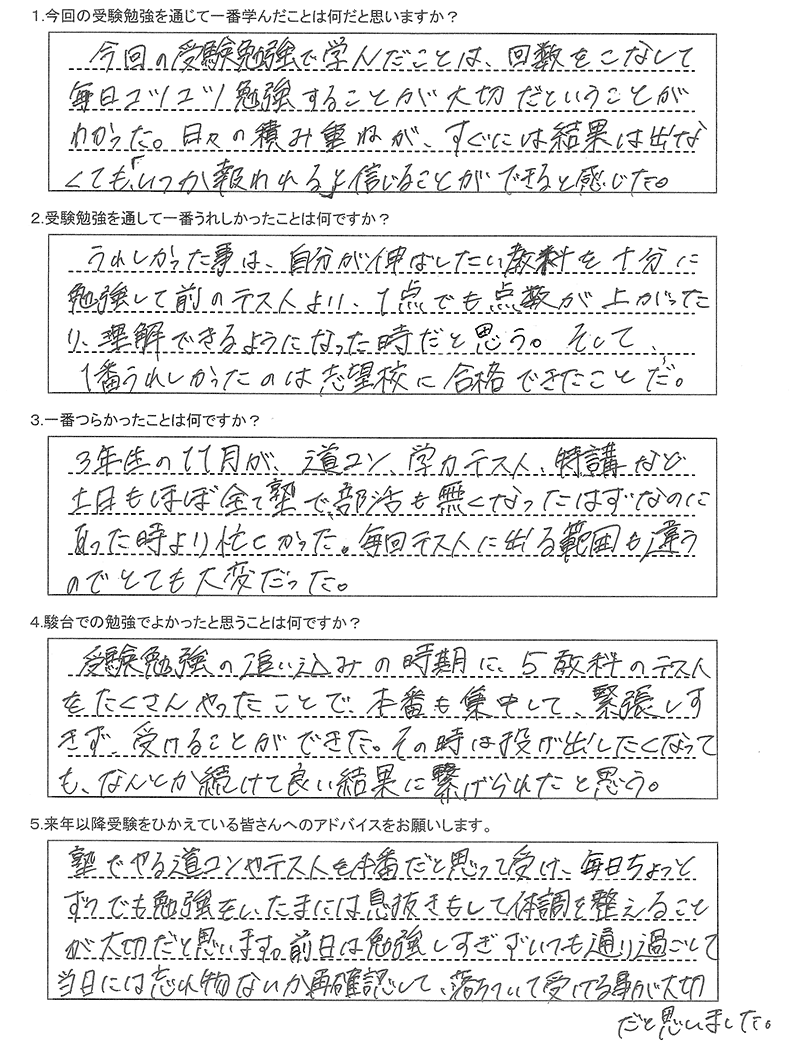 1.今回の受験勉強を通じて一番学んだことは何だと思いますか？
今回の受験勉強で学んだことは、回数をこなして
毎日コツコツ勉強することが大切だということが
わかった。日々の積み重ねが、すぐには結果は出な
くても、「いつか報われる」と信じることができると感じた。
2.受験勉強を通して一番うれしかったことは何ですか？
うれしかった事は、自分が伸ばしたい教科を十分に
勉強して前のテストより、1点でも点数が上がった
り、理解できるようになった時だと思う。そして、
1番うれしかったのは志望校に合格できたことだ。
3.一番つらかったことは何ですか？
3年生の11月が、道コン、学力テスト、特講など
土日もほぼ全て塾で、部活も無くなったはずなのに
あった時より忙しかった。毎回テストに出る範囲も違う
のでとても大変だった。
4.駿台での勉強でよかったと思うことは何ですか？
受験勉強の追い込みの時期に、5教科のテスト
をたくさんやったことで、本番も集中して、緊張しす
ぎず、受けることができた。その時は投げ出したくなって
も、なんとか続けて良い結果に繋げられたと思う。
5.来年以降受験をひかえている皆さんへのアドバイスをお願いします。
塾でやる道コンやテストを本番だと思って受け、毎日ちょっと
ずつでも勉強をし、たまには息抜きもして体調を整えること
が大切だと思います。前日は勉強しすぎずいつも通り過ごして
当日には忘れ物ないか再確認して、落ちついて受ける事が大切
だと思いました。